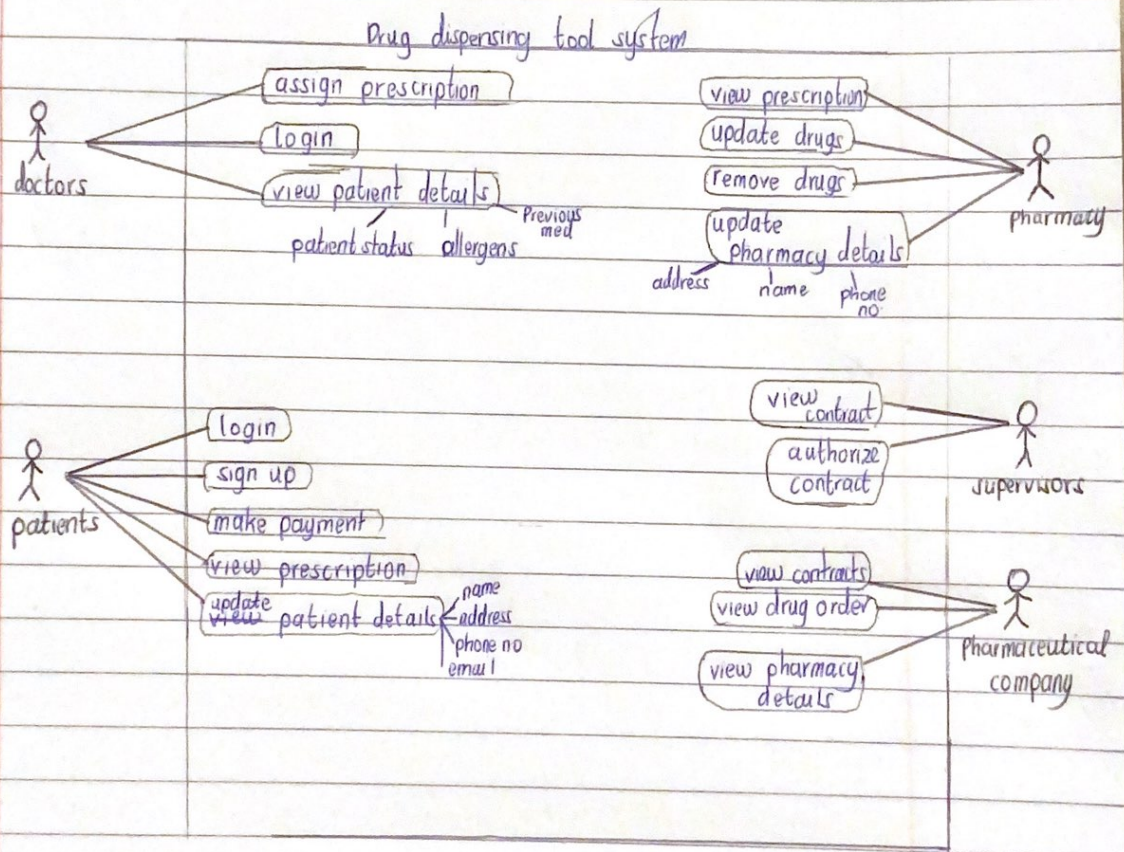 Drug dispensing tool system
assign prescription
login
view patient details
doctors
patient status
allergens
Previous
med
view prescription
update drugs
remove drugs
update
pharmacy details
address
name
phone
no.
pharmacy
login
sign up
make payment
view prescription
update
view patient details
name
address
phone no
email
patients
view
contract
authorize
contract
supervisors
view contracts
view drug order
view pharmacy
details
Pharmaceutical
company